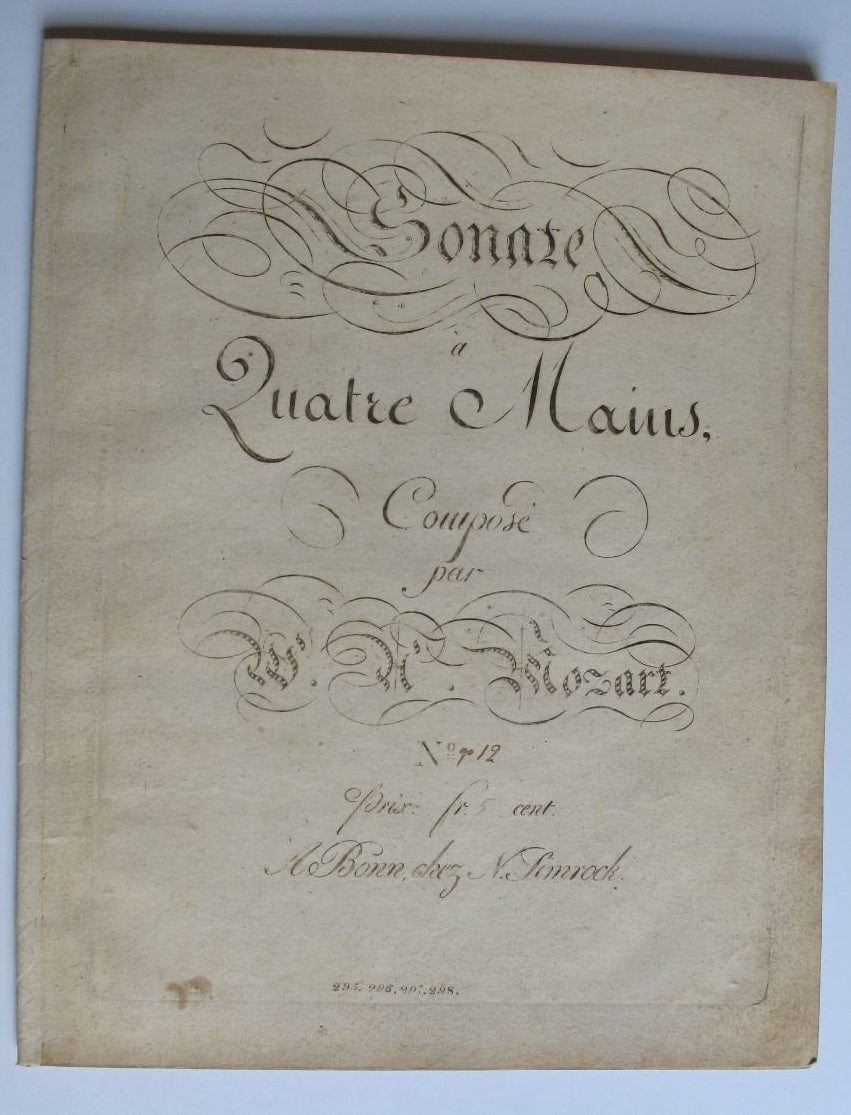 Sonate
à
Quatre Mains,
Composé
par
W. A. Mozart.
Nº op 12
Prix: fr. 5 cent.
A Bonn, chez N. Simrock.
295. 296. 297. 298.